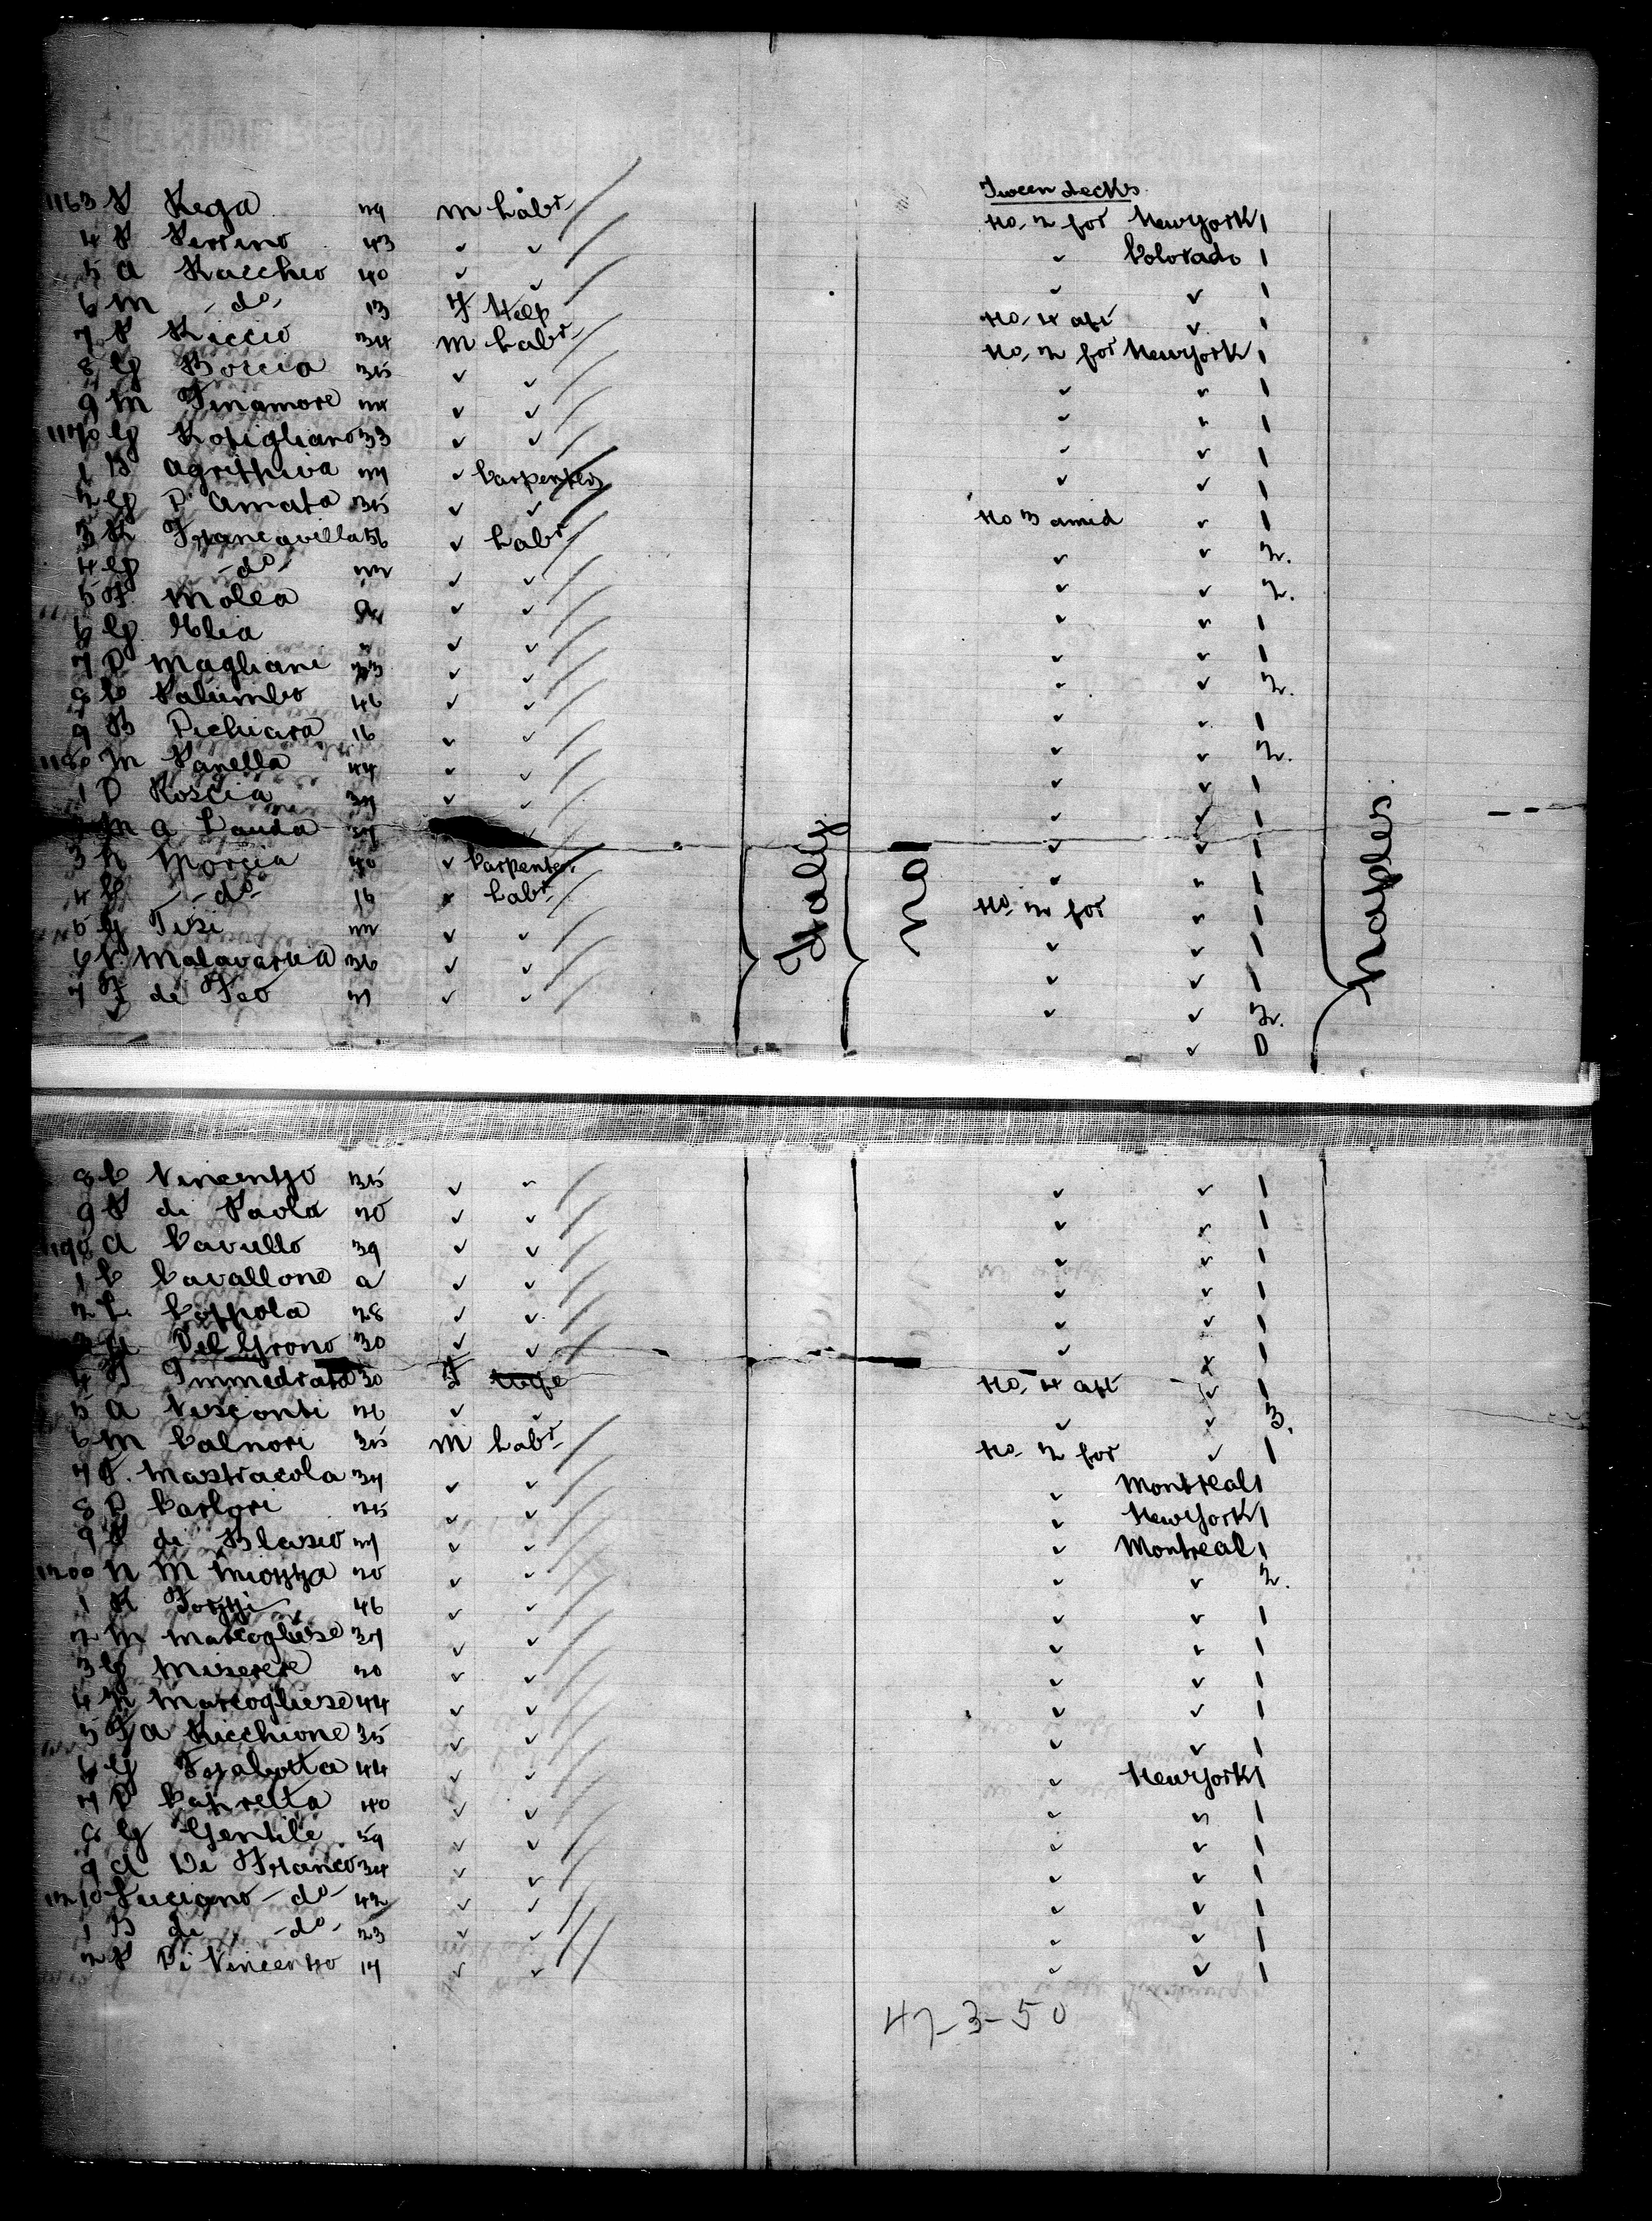 Tween decks
1163 P Rega 29 m Labr No. 2 for New York 1
4 P Perrino 43 ✓ ✓ ✓ Colorado 1
5 A Racchio 40 ✓ ✓ ✓ ✓ 1
6 M -do- 13 F Help No. 4 aft ✓ 1
7 P Riccio 34 m Labr No. 2 for New York 1
8 G Borcia 35 ✓ ✓ ✓ ✓ 1
9 M Finamore 24 ✓ ✓ ✓ ✓ 1
1170 G Kotigliano 33 ✓ ✓ ✓ ✓ 1
1 B Agrippiva 27 ✓ Carpenter ✓ ✓ 1
2 G D Amata 35 ✓ ✓ No 3 amid ✓ 1
3 R Francavilla 56 ✓ Labr ✓ ✓ 2.
4 G -do- 22 ✓ ✓ ✓ ✓ 2.
5 F Molea ✓ ✓ ✓ ✓ 1
6 G Elia ✓ ✓ ✓ ✓ 1
7 D Magliani 33 ✓ ✓ ✓ ✓ 2.
8 C Palumbo 46 ✓ ✓ ✓ ✓ 1
9 B Dichiara 16 ✓ ✓ ✓ ✓ 2.
1180 M Panella 44 ✓ ✓ ✓ ✓ 1
1 D Roscia 37 ✓ ✓ ✓ ✓ 1
M A Lauda 37 ✓ ✓ ✓ 1
3 N Morcia 40 ✓ Carpenter ✓ ✓ 1
4 G -do- 16 ✓ Labr No. 2 for ✓ 1
5 G Tisi 22 ✓ ✓ ✓ ✓ 1
6 V Malavarua 36 ✓ ✓ ✓ ✓ 1
7 F di Feo 27 ✓ ✓ ✓ ✓ 2.
✓ 0
Italy
no
Naples
8 C Vincenzo 35 ✓ ✓ ✓ ✓ 1
9 P di Paola 20 ✓ ✓ ✓ ✓ 1
1190 A Cavullo 39 ✓ ✓ ✓ ✓ 1
1 C Cavallone ✓ ✓ ✓ ✓ 1
2 L Coppola 28 ✓ ✓ ✓ ✓ 1
3 G Del Grono 30 ✓ ✓ ✓ 1
4 F Immediata 30 F wife No. 4 aft ✓ 1
5 A Visconti 26 ✓ ✓ ✓ ✓ 3.
6 M Calnori 35 m Labr No. 2 for ✓ 1
7 P. Mastracola 37 ✓ ✓ ✓ Montreal 1
8 D Carlori 25 ✓ ✓ ✓ New York 1
9 P di Blasio 27 ✓ ✓ ✓ Montreal 1
1200 N M Miozza 20 ✓ ✓ ✓ ✓ 2.
1 R Fozzi 46 ✓ ✓ ✓ ✓ 1
2 M Marcogliese 37 ✓ ✓ ✓ ✓ 1
3 G Miserere 20 ✓ ✓ ✓ ✓ 1
4 N Marcogliese 44 ✓ ✓ ✓ ✓ 1
5 F A Ricchione 35 ✓ ✓ ✓ ✓ 1
6 G Frabotta 44 ✓ ✓ ✓ New York 1
7 D Capretta 40 ✓ ✓ ✓ ✓ 1
8 G Gentile 59 ✓ ✓ ✓ ✓ 1
9 A Di Franco 34 ✓ ✓ ✓ ✓ 1
1210 Luciano -do- 42 ✓ ✓ ✓ ✓ 1
1 B di -do- 23 ✓ ✓ ✓ ✓ 1
2 P Di Vincenzo 17 ✓ ✓ ✓ ✓ 1
47-3-50